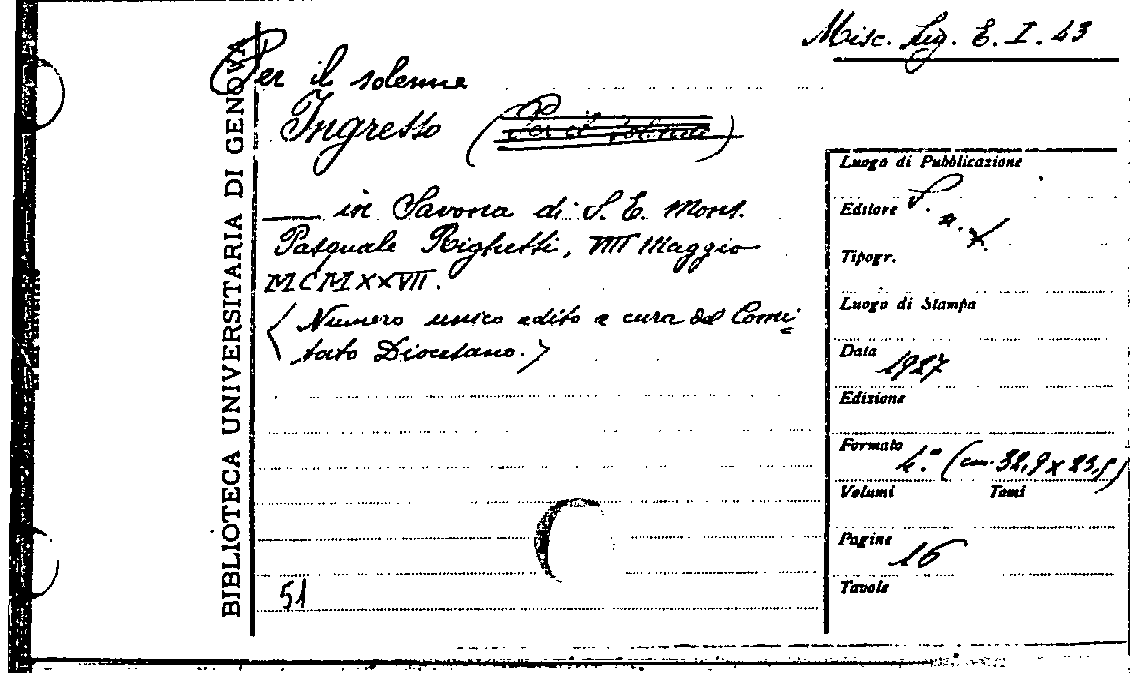 Misc. Lig. E. I. 43
BIBLIOTECA UNIVERSITARIA DI GENOVA
Per il solenne
Ingresso (Per il solenne)
— in Savona di S. E. Mons.
Pasquale Righetti, VIII Maggio
MCMXXVII.
(Numero unico edito a cura del Comi=
tato Diocesano.)
51
Luogo di Pubblicazione
Editore S.
n. t.
Tipogr.
Luogo di Stampa
Data 1927
Edizione
Formato 4.° (cm. 32,9 x 23,5)
Volumi Tomi
Pagine 16
Tavole